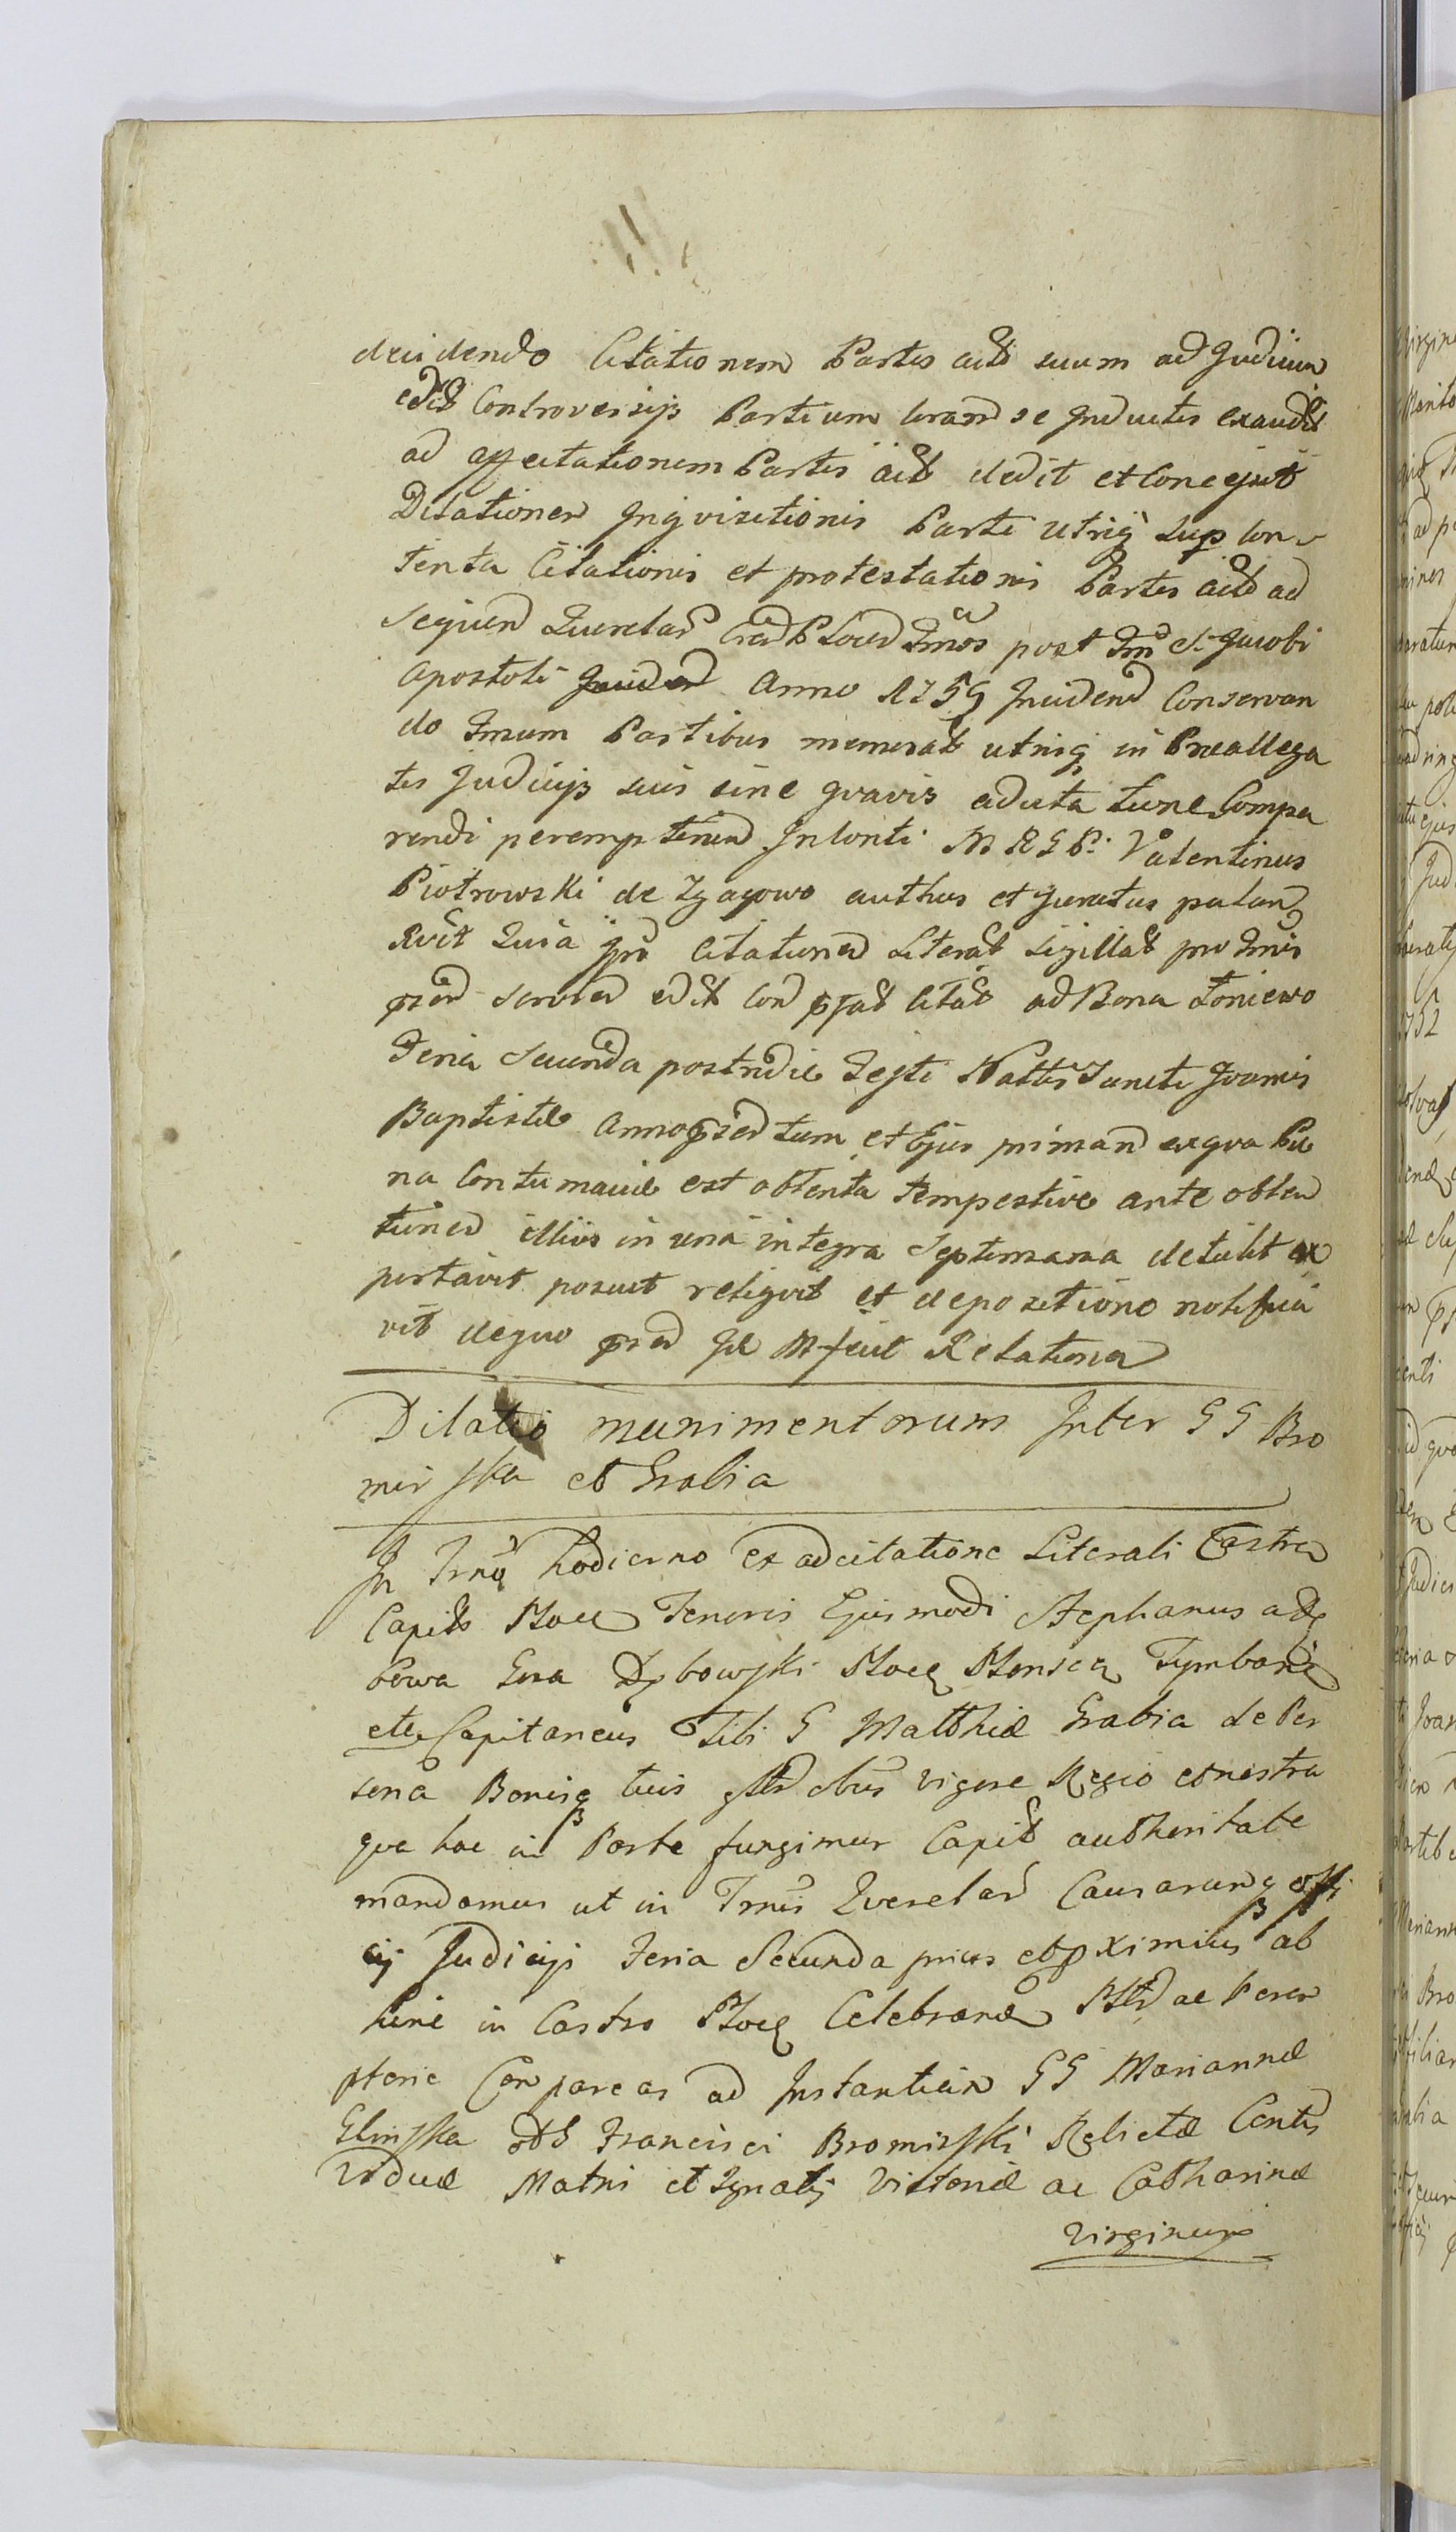 decidendo Citationem Partis act suum ad Judicium
edit Controversijs Partium coram se Inductis exaudit
ad affectationem Partis act dedit et Concessit
Dilationem Inqvisitionis Parti utriq sup Con
tenta Citationis et protestationis Partis act ad
seqven Querelar Tmos post Fm S Jacobi
Apostoli Anno 1759 Inciden Conservan
do Tmum Partibus memorat utrisq in Preallega
tis Judicijs suis sine gravis adcita tunc Compa
rendi peremptorium In Conti M R G P. Valentinus
Piotrowski de Zgagowo authus et Juratus palam
Qvia Citationem Literat Sigillat pro Tmis
edit ad Bona Łoniewo
Feria Secunda postridie Festi Nattis Sancti Joannis
Baptistæ Anno et Ejus primam ex qva Pœ
na Contumaciæ est obtenta tempestive ante obten
tionem illius in una integra Septimana detulit ex
portavit posuit reliqvit et depositione notifica
vit de qvo M fecit Relationem
Dilatio munimentorum Inter G G Bro
mirska et Grabia
In Trno hodierno ex adcitatione Literali Castren
Capit Ploce Tenoris Ejusmodi Stephanus a Dę
bowa Gora Dębowski Ploceñ Plonscen Tymbarcen
etc Capitaneus Tibi G Matthiæ Grabia de Per
sona Bonisq tuis gñlr obus vigore Regio et nostra
qva hac in Parte fungimur Capit authoritate
mandamus ut in Trnis Qverelar Causarumq offi
cij Judicijs Feria Secunda prius et pximius ab
hinc in Castro Ploceñ Celebrand ac Perem
ptorie Compareas ad Instantiam G G Mariannæ
Glinska Francisci Bromirski Relictæ Contis
Viduæ Matris et Ignatij Victoriæ ac Catharinæ
Virginum